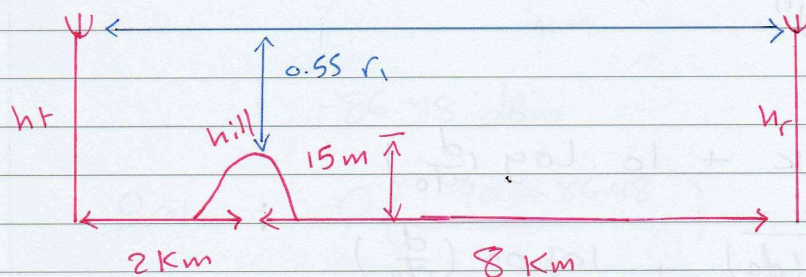 0.55 r₁
ht
hill
15m
hr
2 Km
8 Km